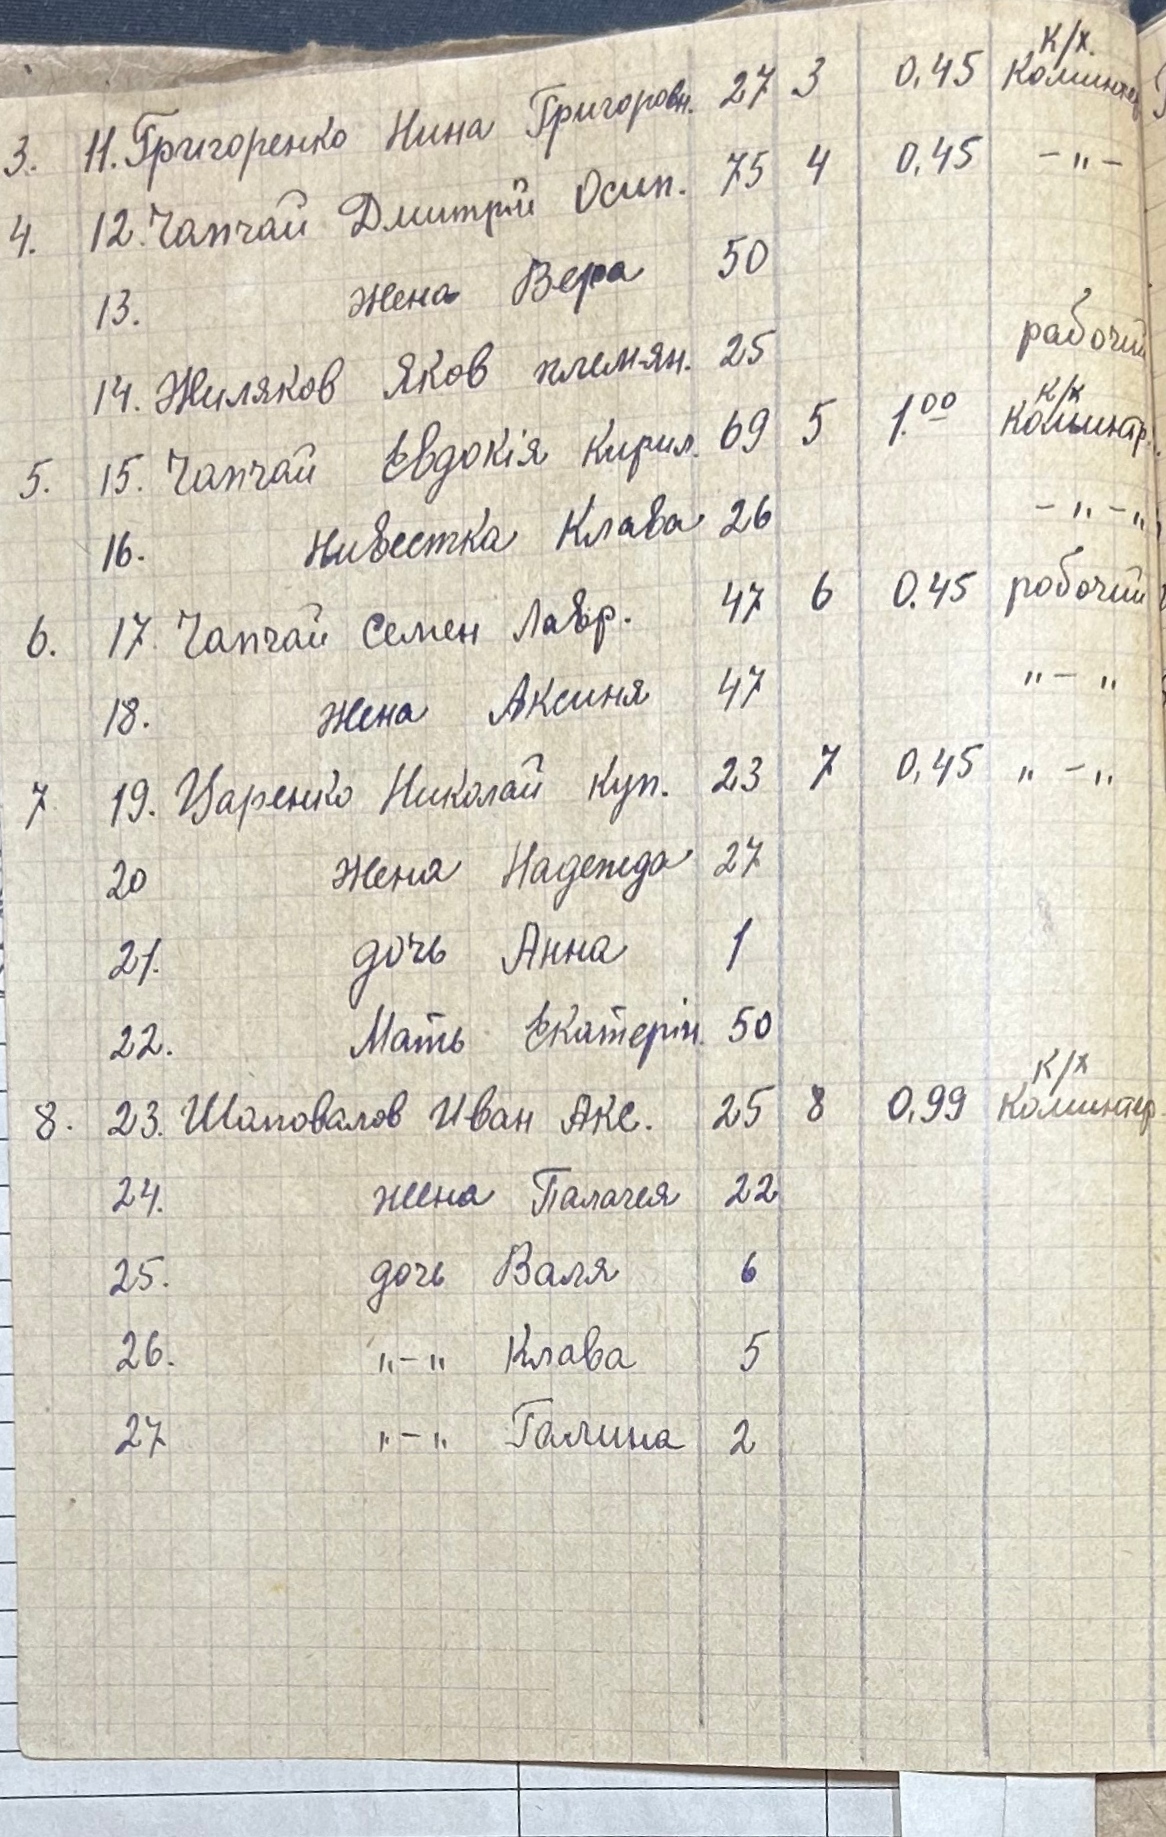 3. 11. Григоренко Нина Григоровн. 27 3 0.45 к/х. Коминтер
4. 12. Чапчай Дмитрій Осип. 75 4 0.45 -"-
13. жена Вера 50
14. Жиляков Яков племян. 25 рабочий
5. 15. Чапчай Евдокія Кирил. 69 5 1.00 к/х Коминтр.
16. Нивестка Клава 26 -"-"
6. 17. Чапчай Семен Лавр. 47 6 0.45 робочий
18. жена Аксиня 47 "-"
7 19. Царенко Николай Куп. 23 7 0,45 "-"
20 жена Надежда 27
21. дочь Анна 1
22. Мать Екатерін. 50
8. 23. Шаповалов Иван Акс. 25 8 0,99 к/х Коминтер.
24. жена Палагея 22
25. дочь Валя 6
26. "-" Клава 5
27 "-" Галина 2